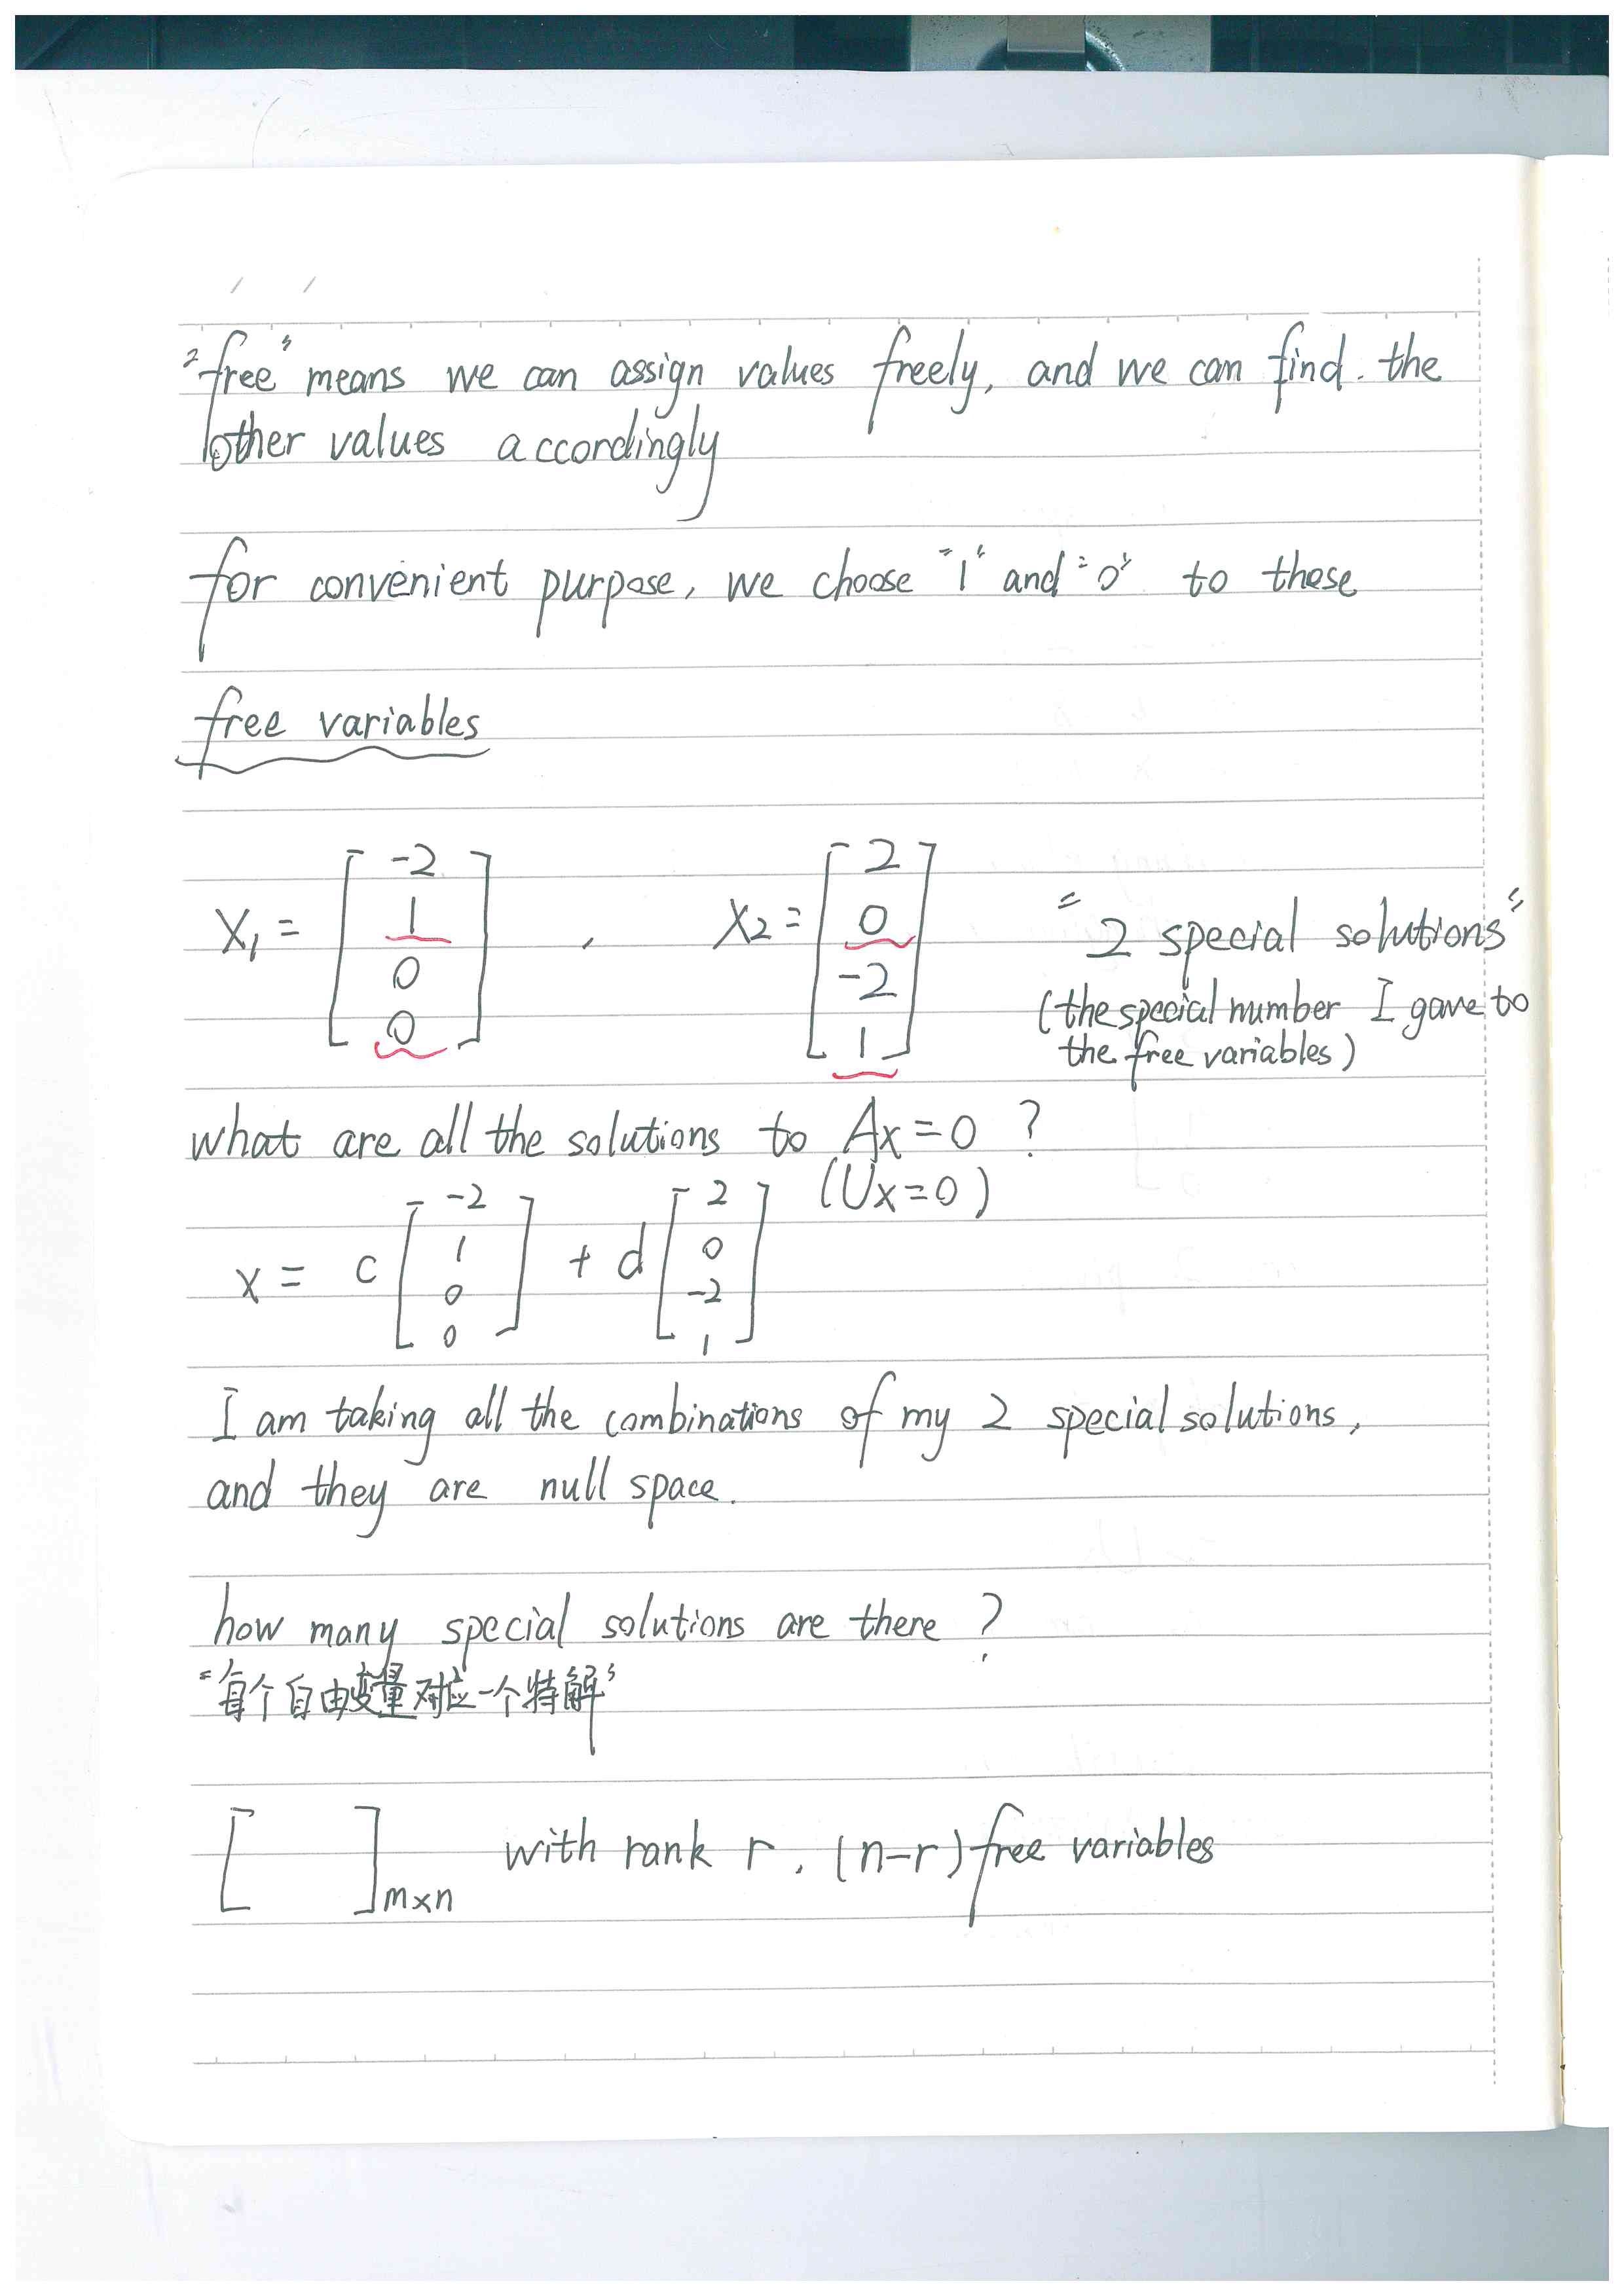 "free" means we can assign values freely, and we can find. the
other values accordingly
for convenient purpose, we choose "1" and "0" to these
free variables
X₁ = [ -2 1 0 0 ] , X₂ = [ 2 0 -2 1 ] "2 special solutions"
(the special number I gave to
the free variables)
what are all the solutions to Ax=0 ?
(Ux=0)
x = c [ -2 1 0 0 ] + d [ 2 0 -2 1 ]
I am taking all the combinations of my 2 special solutions,
and they are null space.
how many special solutions are there ?
"每个自由变量对应一个特解"
[ ]m×n with rank r. (n-r) free variables